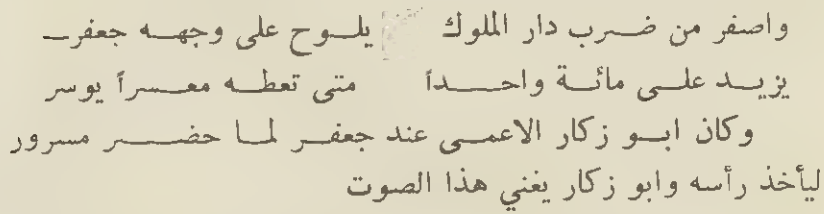 واصفر من ضرب دار الملوك يلوح على وجهه جعفر
يزيد على مائة واحداً متى تعطه معسراً يوسر
وكان ابو زكار الاعمى عند جعفر لما حضر مسرور
ليأخذ رأسه وابو زكار يغني هذا الصوت